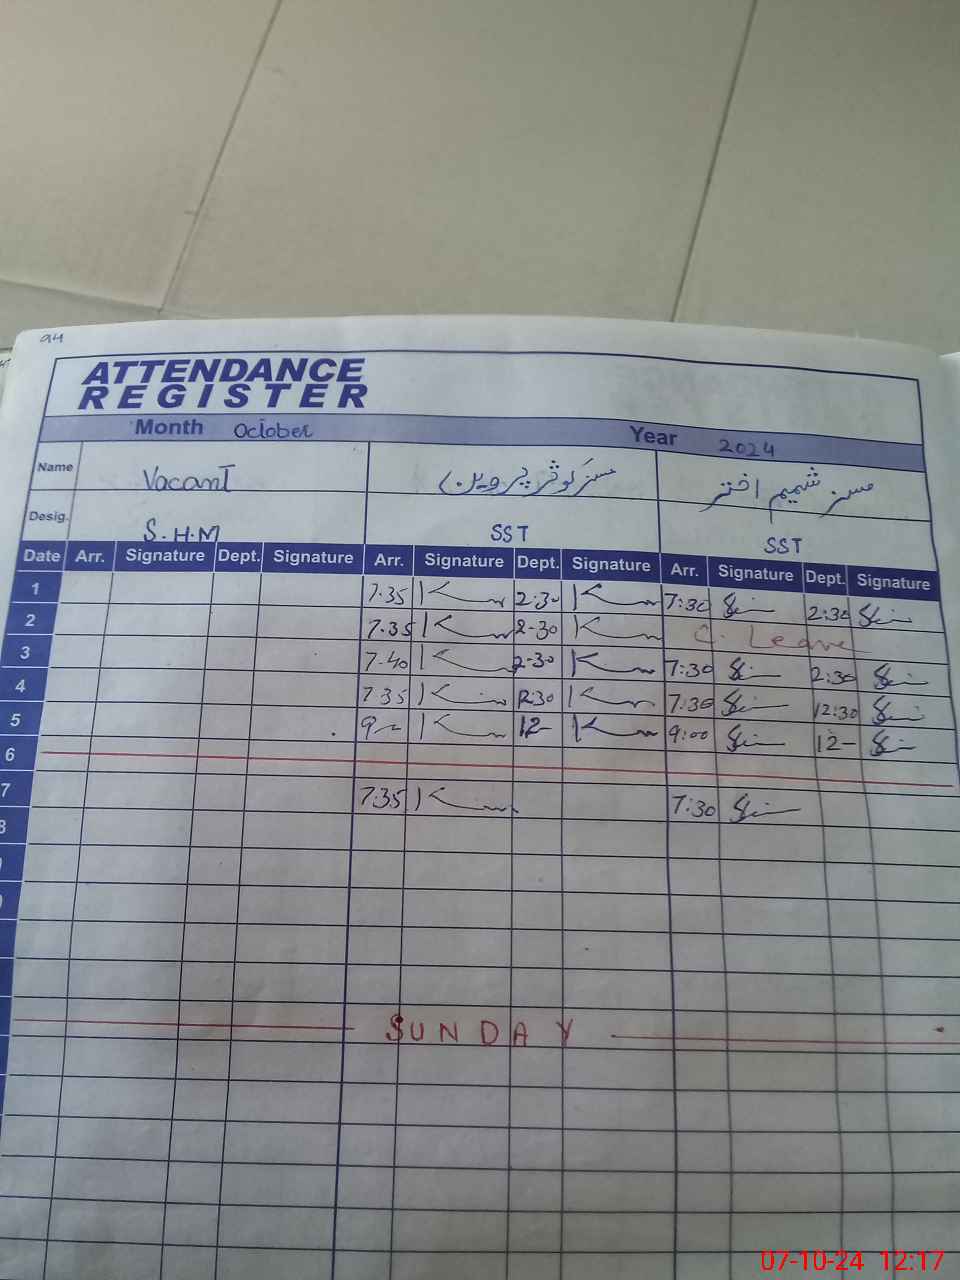 94
ATTENDANCE
REGISTER
Month October Year 2024
Name Vacant مسز کوثر پروین مسز شمیم اختر
Desig. S.H.M SST SST
Date Arr. Signature Dept. Signature Arr. Signature Dept. Signature Arr. Signature Dept. Signature
1 7.35 2:30 7:30 2:30
2 7.35 2-30 C. Leave
3 7.40 2-30 7:30 2:30
4 7.35 12:30 7:30 12:30
5 9 12- 9:00 12-
6
7 7:35 7:30
8
SUNDAY
07-10-24 12:17